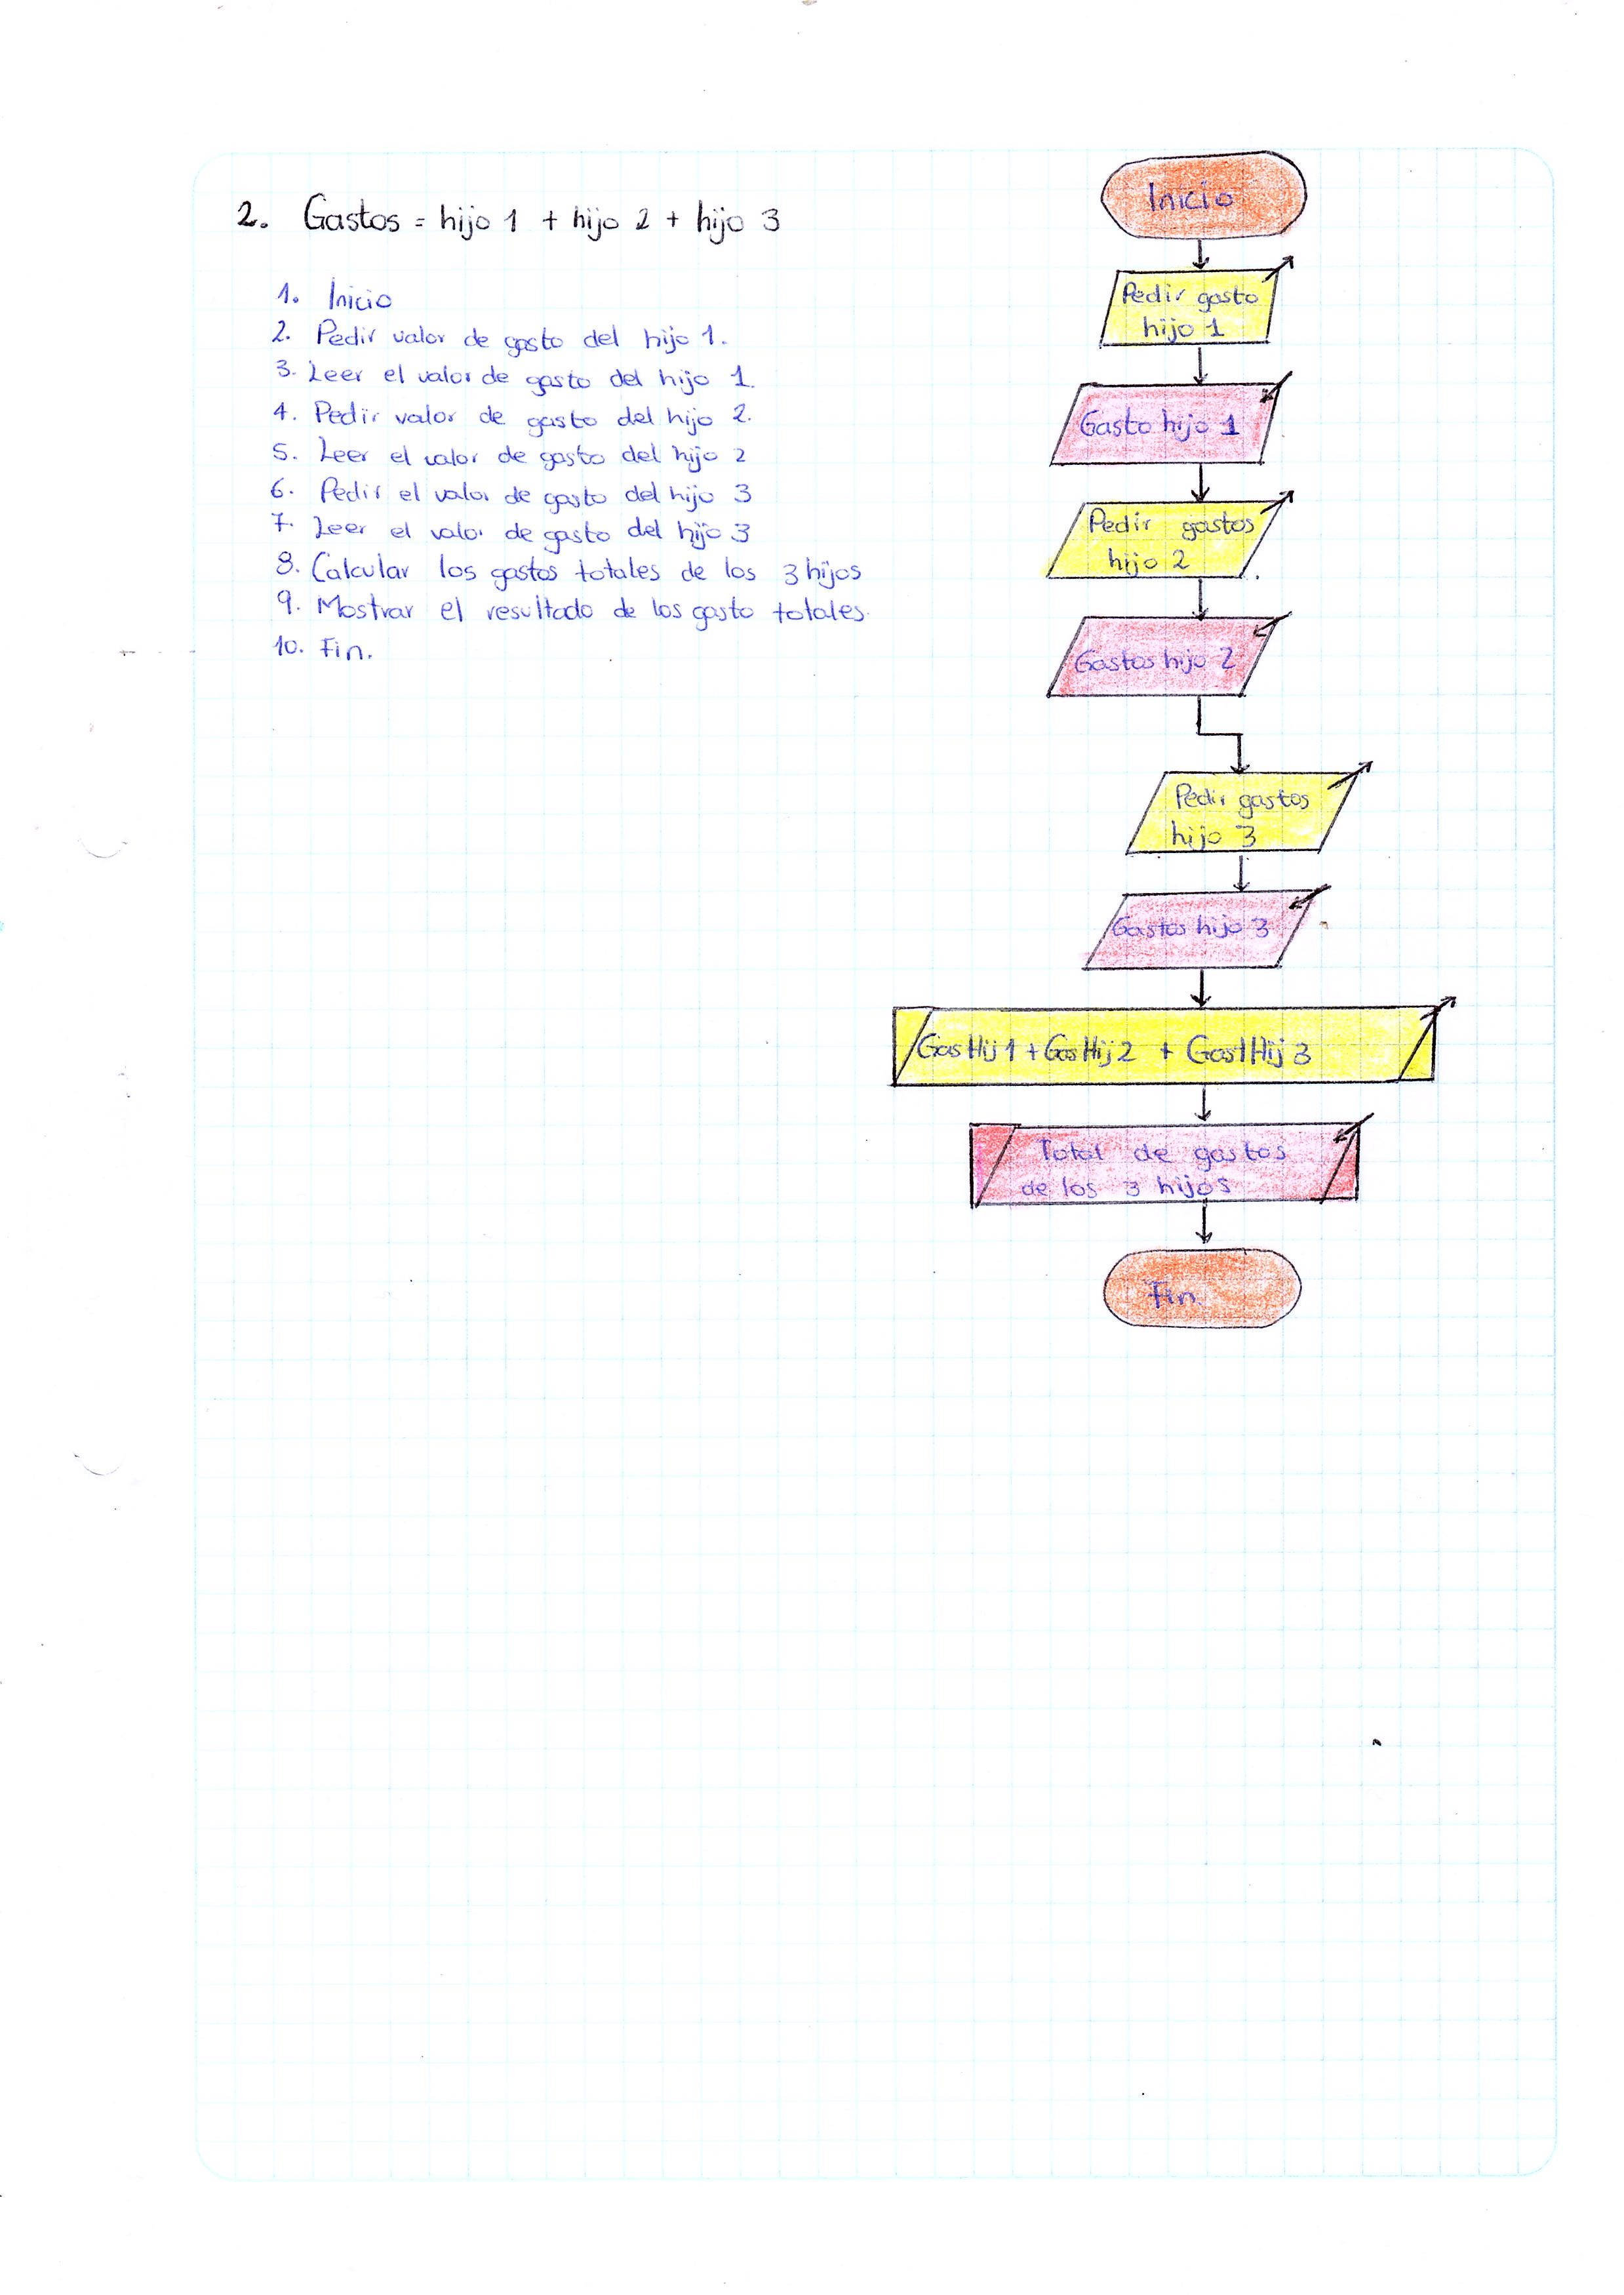 2. Gastos = hijo 1 + hijo 2 + hijo 3
1. Inicio
2. Pedir valor de gasto del hijo 1.
3. Leer el valor de gasto del hijo 1.
4. Pedir valor de gasto del hijo 2.
5. Leer el valor de gasto del hijo 2
6. Pedir el valor de gasto del hijo 3
7. Leer el valor de gasto del hijo 3
8. Calcular los gastos totales de los 3 hijos
9. Mostrar el resultado de los gasto totales.
10. Fin.
Inicio
Pedir gasto
hijo 1
Gasto hijo 1
Pedir gastos
hijo 2
Gastos hijo 2
Pedir gastos
hijo 3
Gastos hijo 3
GasHij 1 + GasHij 2 + GastHij 3
Total de gastos
de los 3 hijos
Fin.